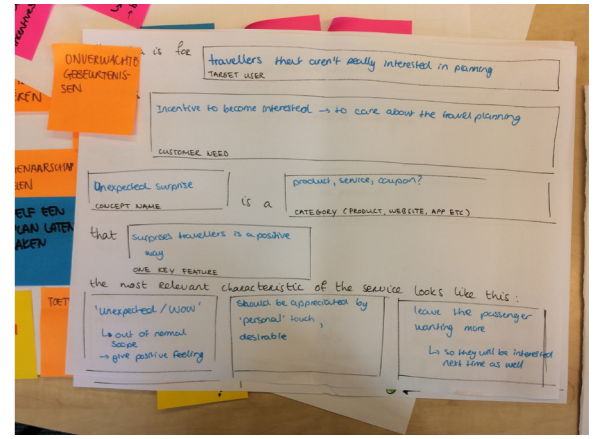 incentives
ONVERWACHTE
GEBEURTENIS-
SEN
is for
travellers that aren't really interested in planning
TARGET USER
Incentive to become interested → to care about the travel planning
CUSTOMER NEED
EREN
ENAARSCHAP
LEN
ELF EEN
PLAN LATEN
AKEN
Unexpected surprise
CONCEPT NAME
is a
product, service, coupon?
CATEGORY (PRODUCT, WEBSITE, APP ETC)
that
surprises travellers is a positive
way
ONE KEY FEATURE
the most relevant characteristic of the service looks like this:
TOET
'unexpected / WOW'
↳ out of normal
scope
→ give positive feeling
should be appreciated by
'personal' touch,
desirable
leave the passenger
wanting more
↳ so they will be interested
next time as well